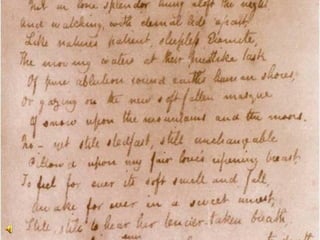 Not in lone splendor hung aloft the night
And watching, with eternal lids apart,
Like nature's patient, sleepless Eremite,
The moving waters at their priestlike task
Of pure ablution round earth's human shores,
Or gazing on the new soft-fallen masque
Of snow upon the mountains and the moors.
No - yet still stedfast, still unchangeable
Pillow'd upon my fair love's ripening breast,
To feel for ever its soft swell and fall,
Awake for ever in a sweet unrest,
Still, still to hear her tender-taken breath,